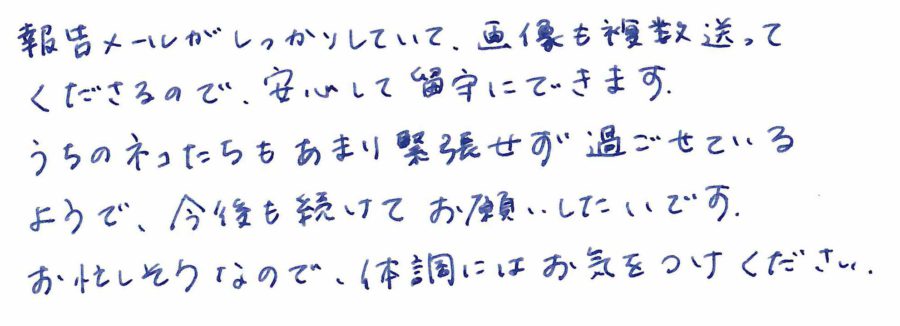 報告メールがしっかりしていて、画像も複数送って
くださるので、安心して留守にできます.
うちのネコたちもあまり緊張せず過ごせている
ようで、今後も続けてお願いしたいです.
お忙しそうなので、体調にはお気をつけください.